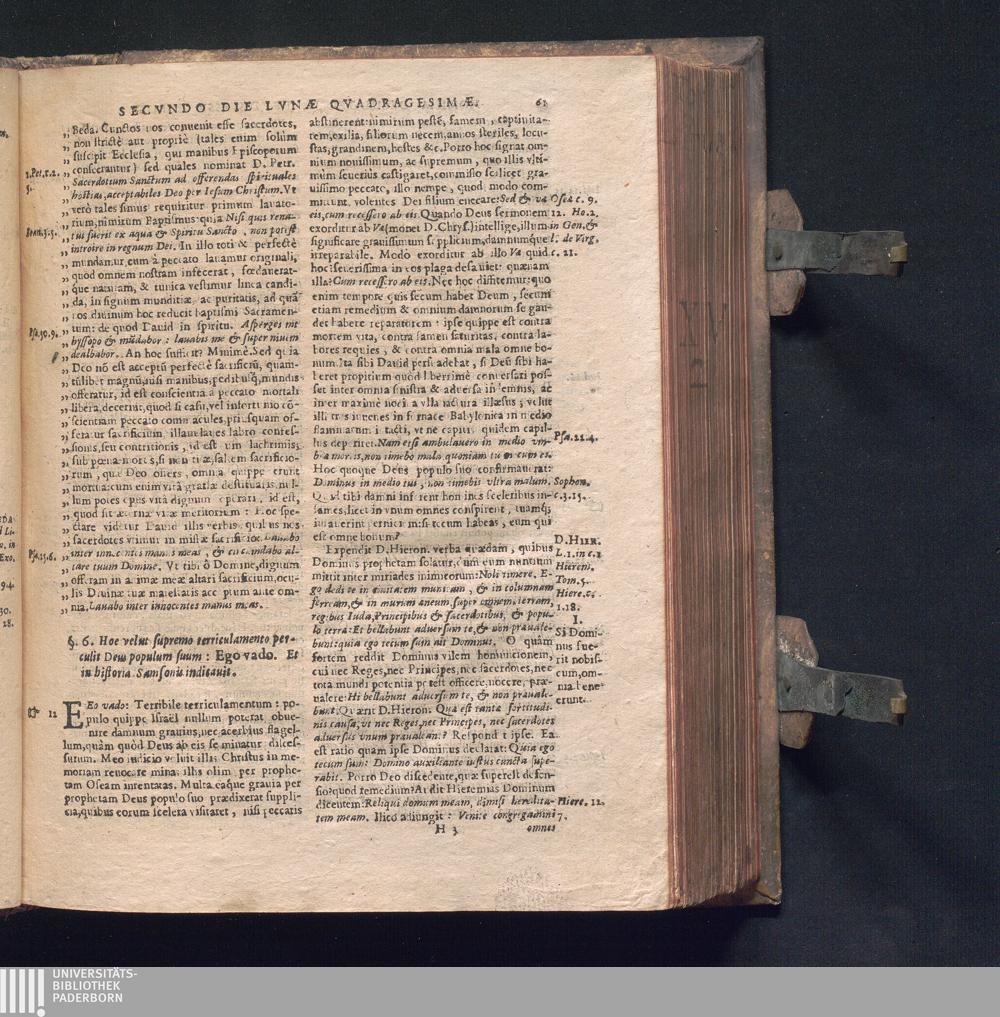 SECVNDO DIE LVNÆ QVADRAGESIMÆ. 61
„ Beda. Cunctos nos conuenit esse sacerdotes,
„ non strictè aut propriè (tales enim solùm
„ suscipit Ecclesia, qui manibus Episcoporum
„ consecrantur) sed quales nominat D. Petr.
1.Pet.c.2.
5.
„ Sacerdotium Sanctum ad offerendas spirituales
„ hostias, acceptabiles Deo per Iesum Christum. Vt
„ verò tales simus requiritur primum lauato-
„ rium, nimirum Baptismus: quia Nisi quis rena-
Ioan.3.5.
„ tus fuerit ex aqua & Spiritu Sancto, non potest
„ introire in regnum Dei. In illo toti & perfectè
„ mundamur, cum à peccato lauamur originali,
„ quod omnem nostram infecerat, fœdauerat-
„ que naturam, & tunica vestimur linea candi-
„ da, in signum munditiæ, ac puritatis, ad quã
„ nos diuinum hoc reducit baptismi Sacramen-
„ tum: de quod Dauid in spiritu. Asperges me
Psa.50.9.
„ hyssopo & mũdabor: lauabis me & super niuem
„ dealbabor. An hoc sufficit? Minimè. Sed quia
„ Deo nõ est acceptũ perfectè sacrificiũ, quam-
„ tũlibet magnũ, nisi manibus, pedibusq́; mundis
„ offeratur, id est conscientia à peccato mortali
„ libera, decernit, quod si casu, vel infortunio cõ-
„ scientiam peccato commacules, priusquam of-
„ feratur sacrificium, illam laues labro confes-
„ sionis, seu contritionis, id est vim lachrimis;
„ sub pœna mortis, si non tuæ, saltem sacrificio-
„ rum, quæ Deo offers, omnia quippe erunt
„ mortua: cum enim vita gratiæ destituaris, nul-
„ lum potes opus vita dignum operari, id est,
„ quod sit æternæ vitæ meritorium: Hoc spe-
„ ctare videtur Dauid illis verbis, quibus nos
„ sacerdotes vtimur in missæ sacrificio: Lauabo
Psa.25.6.
„ inter innocentes manus meas, & circundabo al-
„ tare tuum Domine. Vt tibi ô Domine, dignum
„ offeram in animæ meæ altari sacrificium, ocu-
„ lis Diuinæ tuæ maiestatis acceptum ante om-
„ nia, Lauabo inter innocentes manus meas.
§. 6. Hoc velut supremo terriculamento per-
culit Deus populum suum: Ego vado. Et
in historia Samsonis indicauit.
12 EGo vado: Terribile terriculamentum: po-
pulo quippe Israël nullum poterat obue-
nire damnum grauius, nec acerbius flagel-
lum, quàm quòd Deus ab eis se minatur disces-
surum. Meo iudicio voluit illis Christus in me-
moriam reuocare minas illis olim per prophe-
tam Oseam intentatas. Multa eaque grauia per
prophetam Deus populo suo prædixerat suppli-
cia, quibus eorum scelera visitaret, nisi peccatis
abstinerent: nimirum pestẽ, famem, captiuita-
tem, exilia, filiorum necem, annos steriles, locu-
stas, grandinem, hostes &c. Porro hoc signat om-
nium nouissimum, ac supremum, quo illis vlti-
mùm seuerius castigaret, commisso scilicet gra-
uissimo peccato, illo nempe, quod modo com-
mittunt, volentes Dei filium enecare: Sed & væ
eis, cum recessero ab eis. Quando Deus sermonem
Oseæ c. 9.
12. Ho.2.
exorditur ab Væ (monet D. Chrys.) intellige, illum
in Gen, &
significare grauissimum supplicium, damnumque
l. de Virg.
irreparabile. Modo exorditur ab illo Væ quid
c. 21.
hoc? seuerissima in eos plaga desæuiet: quænam
illa? Cum recessero ab eis. Nec hoc diffitemur: quo
enim tempore quis secum habet Deum, secum
etiam remedium & omnium damnorum se gau-
det habere reparatorem: ipse quippe est contra
mortem vita, contra famen saturitas, contra la-
bores requies, & contra omnia mala omne bo-
num. Ita sibi Dauid persuadebat, si Deũ sibi ha-
beret propitium quòd liberrimè conuersari pos-
set inter omnia sinistra & aduersa indemnis, ac
inter maxime nociua vlla iactura illæsus; velut
illi tres iuuenes in fornace Babylonica in medio
flammarum intacti, vt ne capitis quidem capil-
lus deperiret. Nam etsi ambulauero in medio vm-
Psa.22.4.
bræ mortis, non timebo mala quoniam tu mecum es.
Hoc quoque Deus populo suo confirmauerat:
Dominus in medio tui, non timebis vltra malum.
Sophon.
Quid tibi damni inferent homines sceleribus in-
c.3.15.
fames, licet in vnum omnes conspirent, tuamq́;
iurauerint perniciem: si tecum habeas, eum qui
est omne bonum?
Expendit D. Hieron. verba quædam, quibus
D. HIER.
L.1.in c.1
Dominus prophetam solatur, cùm eum nuntium
Hierem.
mittit inter miriades inimicorum: Noli timere. E-
Tom.5.
go dedi te in ciuitatem munitam, & in columnam
Hiere.c.
ferream, & in murum æneum, super omnem terram,
1.18.
regibus Iuda, Principibus & sacerdotibus, & popu-
1.
lo terræ: Et bellabunt aduersum te, & non præuale-
Si Domi-
bunt: quia ego tecum sum ait Dominus. O quàm
nus fue-
fortem reddit Dominus vilem homuncionem,
rit nobis-
cui nec Reges, nec Principes, nec sacerdotes, nec
cum, om-
tota mundi potentia potest officere, nocere, præ-
nia bene
ualere: Hi bellabunt aduersum te, & non præuale-
erunt.
bunt. Quærit D. Hieron. Quæ est tanta fortitudi-
nis causa, vt nec Reges, nec Principes, nec sacerdotes
aduersus vnum præualeant? Respondit ipse. Ea
est ratio quam ipse Dominus declarat: Quia ego
tecum sum: Domino auxiliante iustus cuncta supe-
rabit. Porro Deo discedente, quæ superest defen-
sio? quod remedium? Audit Hieremias Dominum
dicentem: Reliqui domum meam, dimisi heredita-
Hiere. 12.
tem meam. Ilico adiungit: Venite congregamini
7.
H 3 omnes
UNIVERSITÄTS-
BIBLIOTHEK
PADERBORN